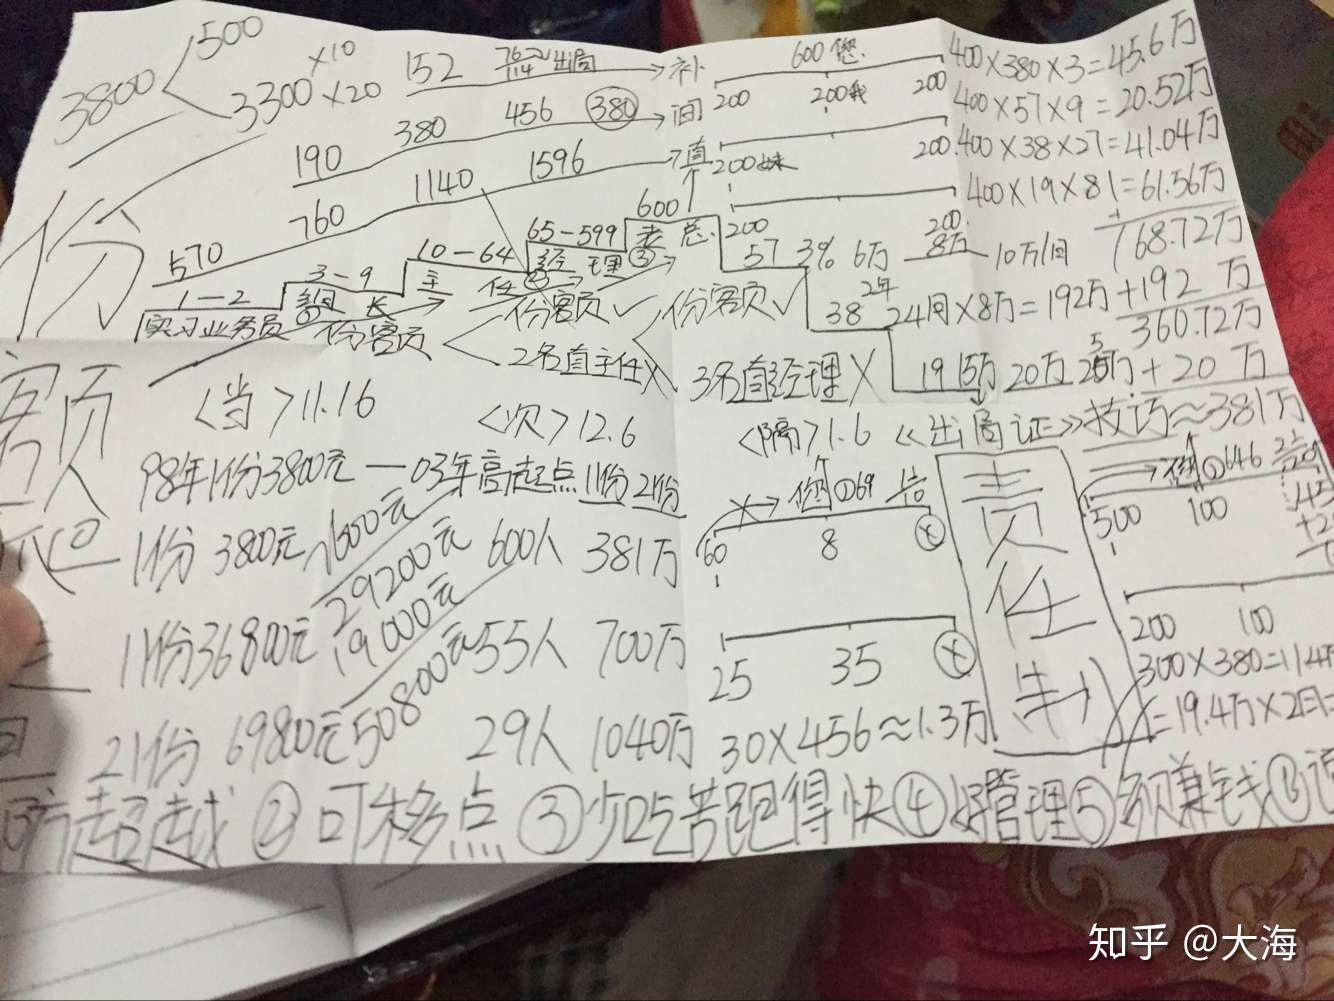 3800
500
3300 ×10 ×20
152
出局
补
600您
200 200我 200
400×380×3=45.6万
190 380 456 380 间
400×57×9=20.52万
570 760 1140 1596 直
200妹 200
400×38×27=41.04万
200 200
400×19×81=61.56万
168.72万
份额
1—2 3—9 10—64 65—599 600
实习业务员 组长 主任 经理 老总
57 3% 6万 8万 10万/间
份额 份额 份额
2名直主任 ×
3名直经理 ×
38 2年 24月×8万=192万
+192万
360.72万
19 15万 20万 25万
+20万
≈381万
<当>11.16 <次>12.6 <隔>1.6 《出局证》技巧
98年1份3800元—03年高起点 11份 21份
1份 3800元 7600元 600人 381万
11份36800元 29200元 19000元 55人 700万
21份 69800元 50800元 29人 1040万
①69
60 8
25 35
30×456≈1.3万
责任制
①646
500 100
200 100
300×380=11.4万
=19.4万×2月=
超越②可移点③少吃苦跑得快④好管理⑤多赚钱⑥
知乎 @大海